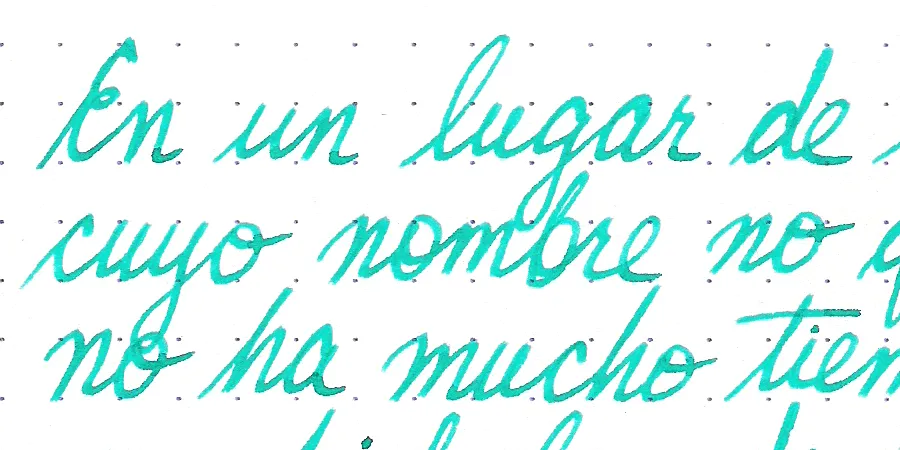 En un lugar de
cuyo nombre no
no ha mucho